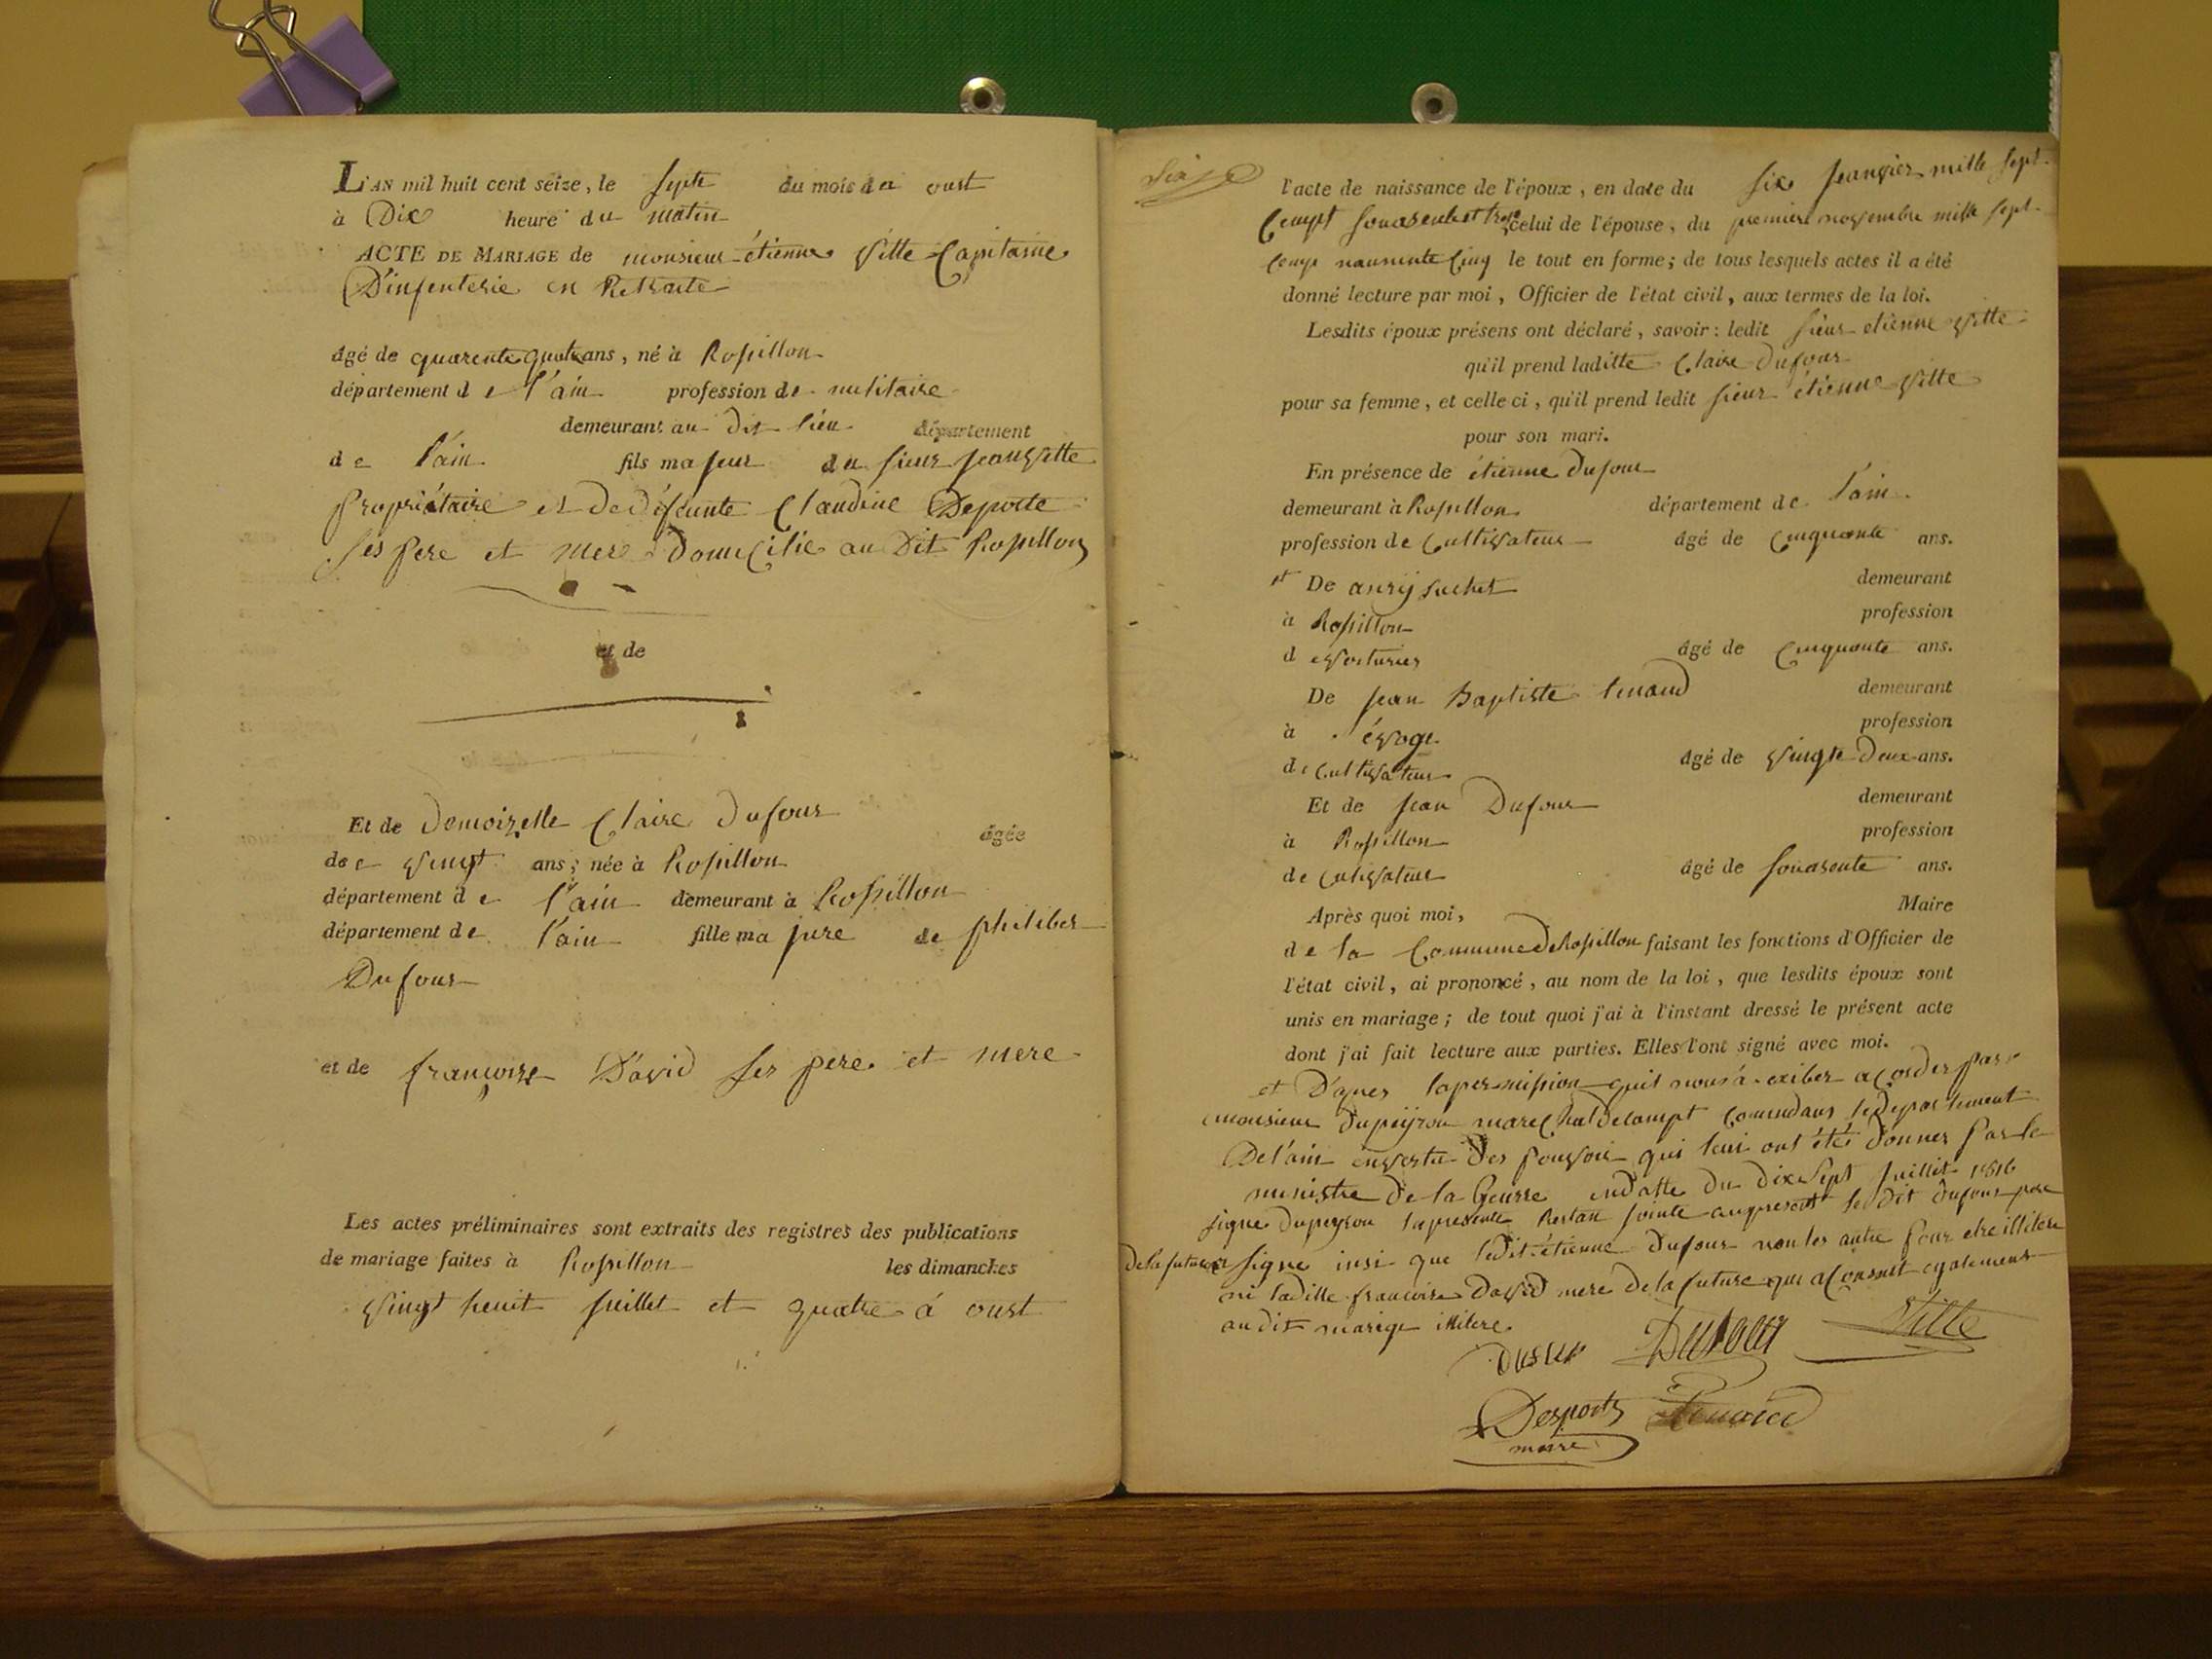 L'AN mil huit cent seize, le septe du mois da oust
à Dix heure du matin
ACTE DE MARIAGE de monsieur étienne Vitte Capitaine
D'infenterie en Retraite
âgé de quarente quatre ans, né à Rossillon
département de l'ain profession de militaire
demeurant au dit lieu département
de l'ain fils majeur du sieur jean Vitte
propriétaire et de défeunte Claudine Deporte
ses pere et mere domicilie au Dit Rossillon
et de
Et de Demoizelle Claire Dufour âgée
de vingt ans, née à Rossillon
département de l'ain demeurant à Rossillon
département de l'ain fille majure de philiber
Dufour
et de françoise David ses pere et mere
Les actes préliminaires sont extraits des registres des publications
de mariage faites à Rossillon les dimanches
vingt heuit juillet et quatre á oust
l'acte de naissance de l'époux, en date du six janvier mille sept
cempt souasente et troze celui de l'épouse, du premiere novembre mille sept
cemp naunente cinq le tout en forme; de tous lesquels actes il a été
donné lecture par moi, Officier de l'état civil, aux termes de la loi.
Lesdits époux présens ont déclaré, savoir: ledit sieur etienne vitte
qu'il prend laditte Claire dufour
pour sa femme, et celle ci, qu'il prend ledit sieur étienne vitte
pour son mari.
En présence de étienne Dufour
demeurant à Rossillon département de l'ain.
profession de Cultivateur âgé de cinquante ans.
et De anrij suchet demeurant
à Rossillon profession
de voiturier âgé de cinquante ans.
De jean Baptiste lenaud demeurant
à évoge profession
de cultivateur âgé de vingte deux ans.
Et de jean Dufour demeurant
à Rossillon profession
de cutivateur âgé de souasente ans.
Après quoi moi, Maire
de la Commune de Rossillon faisant les fonctions d'Officier de
l'état civil, ai prononcé, au nom de la loi, que lesdits époux sont
unis en mariage; de tout quoi j'ai à l'instant dressé le présent acte
dont j'ai fait lecture aux parties. Elles l'ont signé avec moi.
et D'apres la permission quil nous a exiber acorder par
monsieur dupeyron marechal de campt comendans le departement
De l'ain en vertu des pouvoir qui leui ont étés donner par le
ministre de la Geurre en datte du dix sept juillit 1816
signe dupeyron la presente restan jointe au present le dit dufour pere
de la future a signé insi que ledit étienne dufour non les autre pour etre illitere
ni ladille francoise david mere de la future qui a consenti egalement
au dit marige illitere
Dufour Vitte
Desports
maire